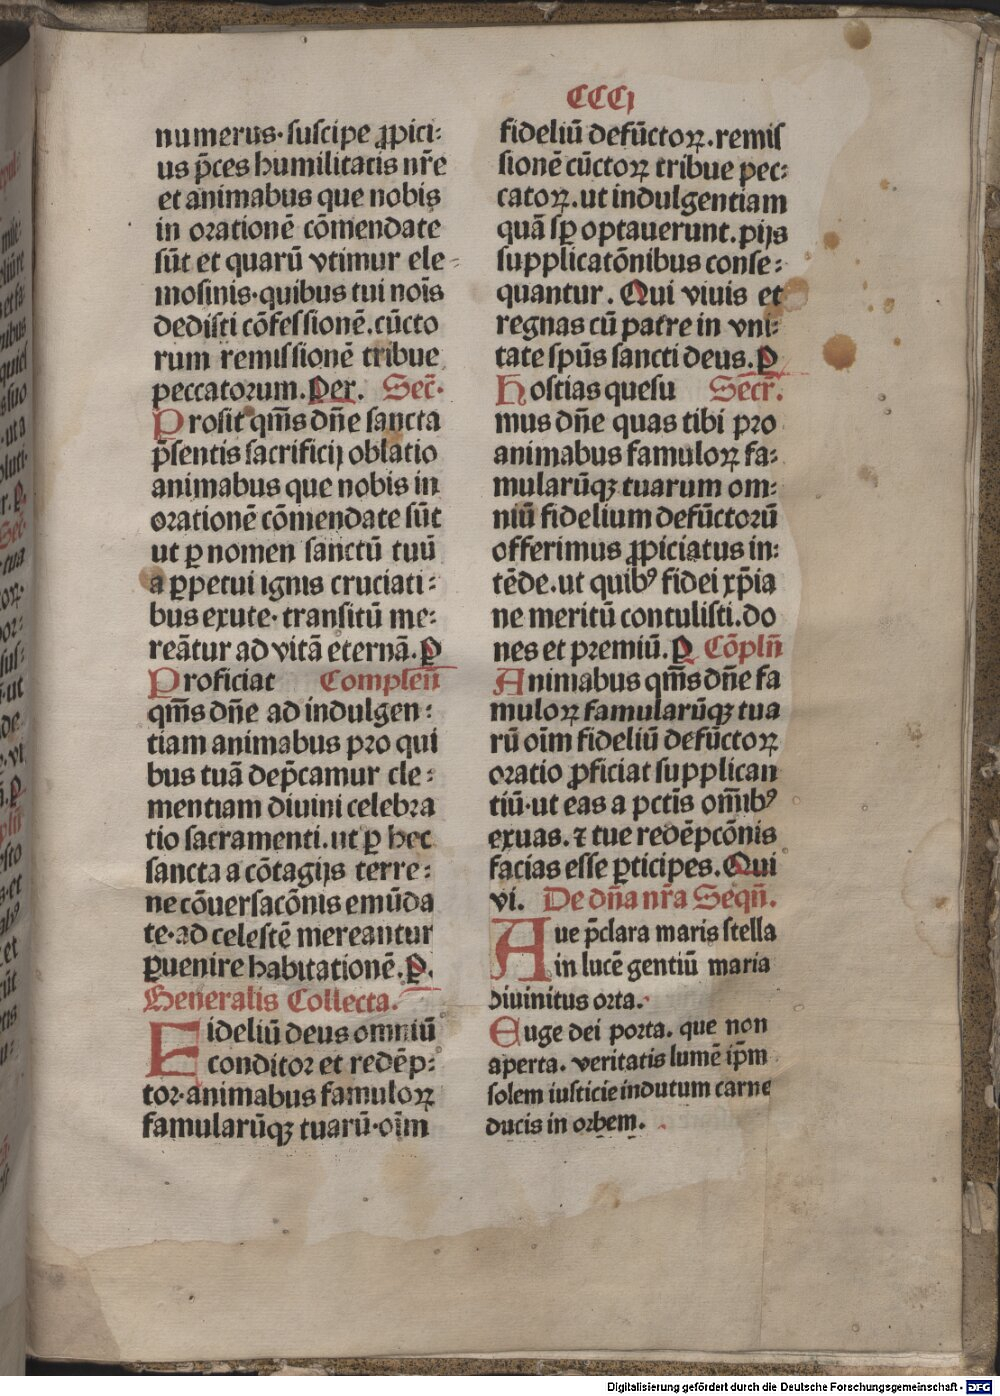 CCCj
numerus· suscipe ꝓpici:
us p̄ces humilitatis nr̄e
et animabus que nobis
in orationē cōmendate
sūt et quarū vtimur ele-
mosinis·quibus tui noīs
dedisti cōfessionē.cūcto
rum remissionē tribue
peccatorum.Per. Sec̄·
Prosit qm̄s dn̄e sancta
p̄sentis sacrificij oblatio
animabus que nobis in
orationē cōmendate sūt
ut ꝑ nomen sanctū tuū
a ꝑpetui ignis cruciati:
bus exute· transitū me-
reātur ad vitā eternā.ꝑ
Proficiat Complen̄
qm̄s dn̄e ad indulgen:
tiam animabus pro qui
bus tuā dep̄camur cle:
mentiam diuini celebra
tio sacramenti.ut ꝑ hec
sancta a cōtagijs terre:
ne cōuersacōnis emūda
te·ad celestē mereantur
ꝑuenire habitationē.ꝑ.
Generalis Collecta.
Fideliū deus omniū
conditor et redēp:
tor·animabus famuloꝝ
famularūqꝫ tuarū·oīm
fideliū defūctoꝝ.remis
sionē cūctoꝝ tribue pec:
catoꝝ.ut indulgentiam
quā sꝑ optauerunt.pijs
supplicatōnibus conse:
quantur. Qui viuis et
regnas cū patre in vni:
tate spūs sancti deus.ꝑ
Hostias quesu Secr̄.
mus dn̄e quas tibi pro
animabus famuloꝝ fa:
mularūqꝫ tuarum om:
niū fidelium defūctorū
offerimus ꝓpiciatus in:
tēde.ut quibꝰ fidei xp̄ia
ne meritū contulisti.do
nes et premiū.ꝑ Cōpln̄
Animabus qm̄s dn̄e fa
muloꝝ famularūqꝫ tua
rū oīm fideliū defūctoꝝ
oratio ꝓficiat supplican
tiū·ut eas a pctīs om̄ibꝰ
exuas.⁊ tue redēpcōnis
facias esse ꝑticipes.Qui
vi. De dn̄a nr̄a Seqū.
Aue p̄clara maris stella
in lucē gentiū maria
diuinitus orta.
Euge dei porta. que non
aperta. veritatis lumē ip̄m
solem iusticie indutum carne
ducis in orbem.
Digitalisierung gefördert durch die Deutsche Forschungsgemeinschaft - DFG